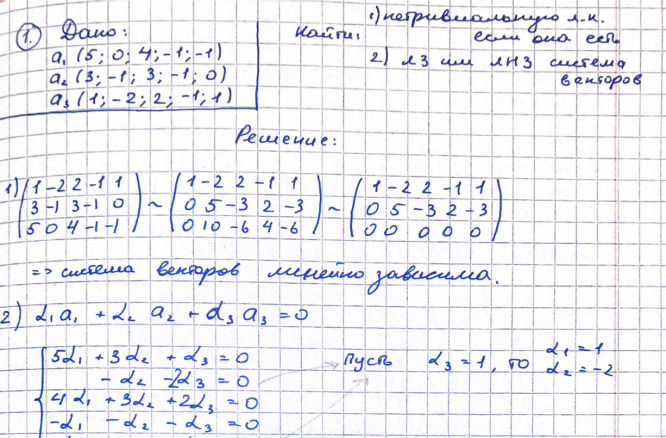 1. Дано:
a₁ (5; 0; 4; -1; -1)
a₂ (3; -1; 3; -1; 0)
a₃ (1; -2; 2; -1; 1)
Найти:
1) нетривиальную л.к.
если она есть
2) ЛЗ или ЛНЗ система
векторов
Решение:
1) (1 -2 2 -1 1) ~ (1 -2 2 -1 1) ~ (1 -2 2 -1 1)
(3 -1 3 -1 0) (0 5 -3 2 -3) (0 5 -3 2 -3)
(5 0 4 -1 -1) (0 10 -6 4 -6) (0 0 0 0 0)
=> система векторов линейно зависима.
2) α₁a₁ + α₂ a₂ + α₃ a₃ = 0
5α₁ + 3α₂ + α₃ = 0
- α₂ - 2α₃ = 0
4α₁ + 3α₂ + 2α₃ = 0
-α₁ - α₂ - α₃ = 0
Пусть α₃ = 1, то α₁ = 1
α₂ = -2